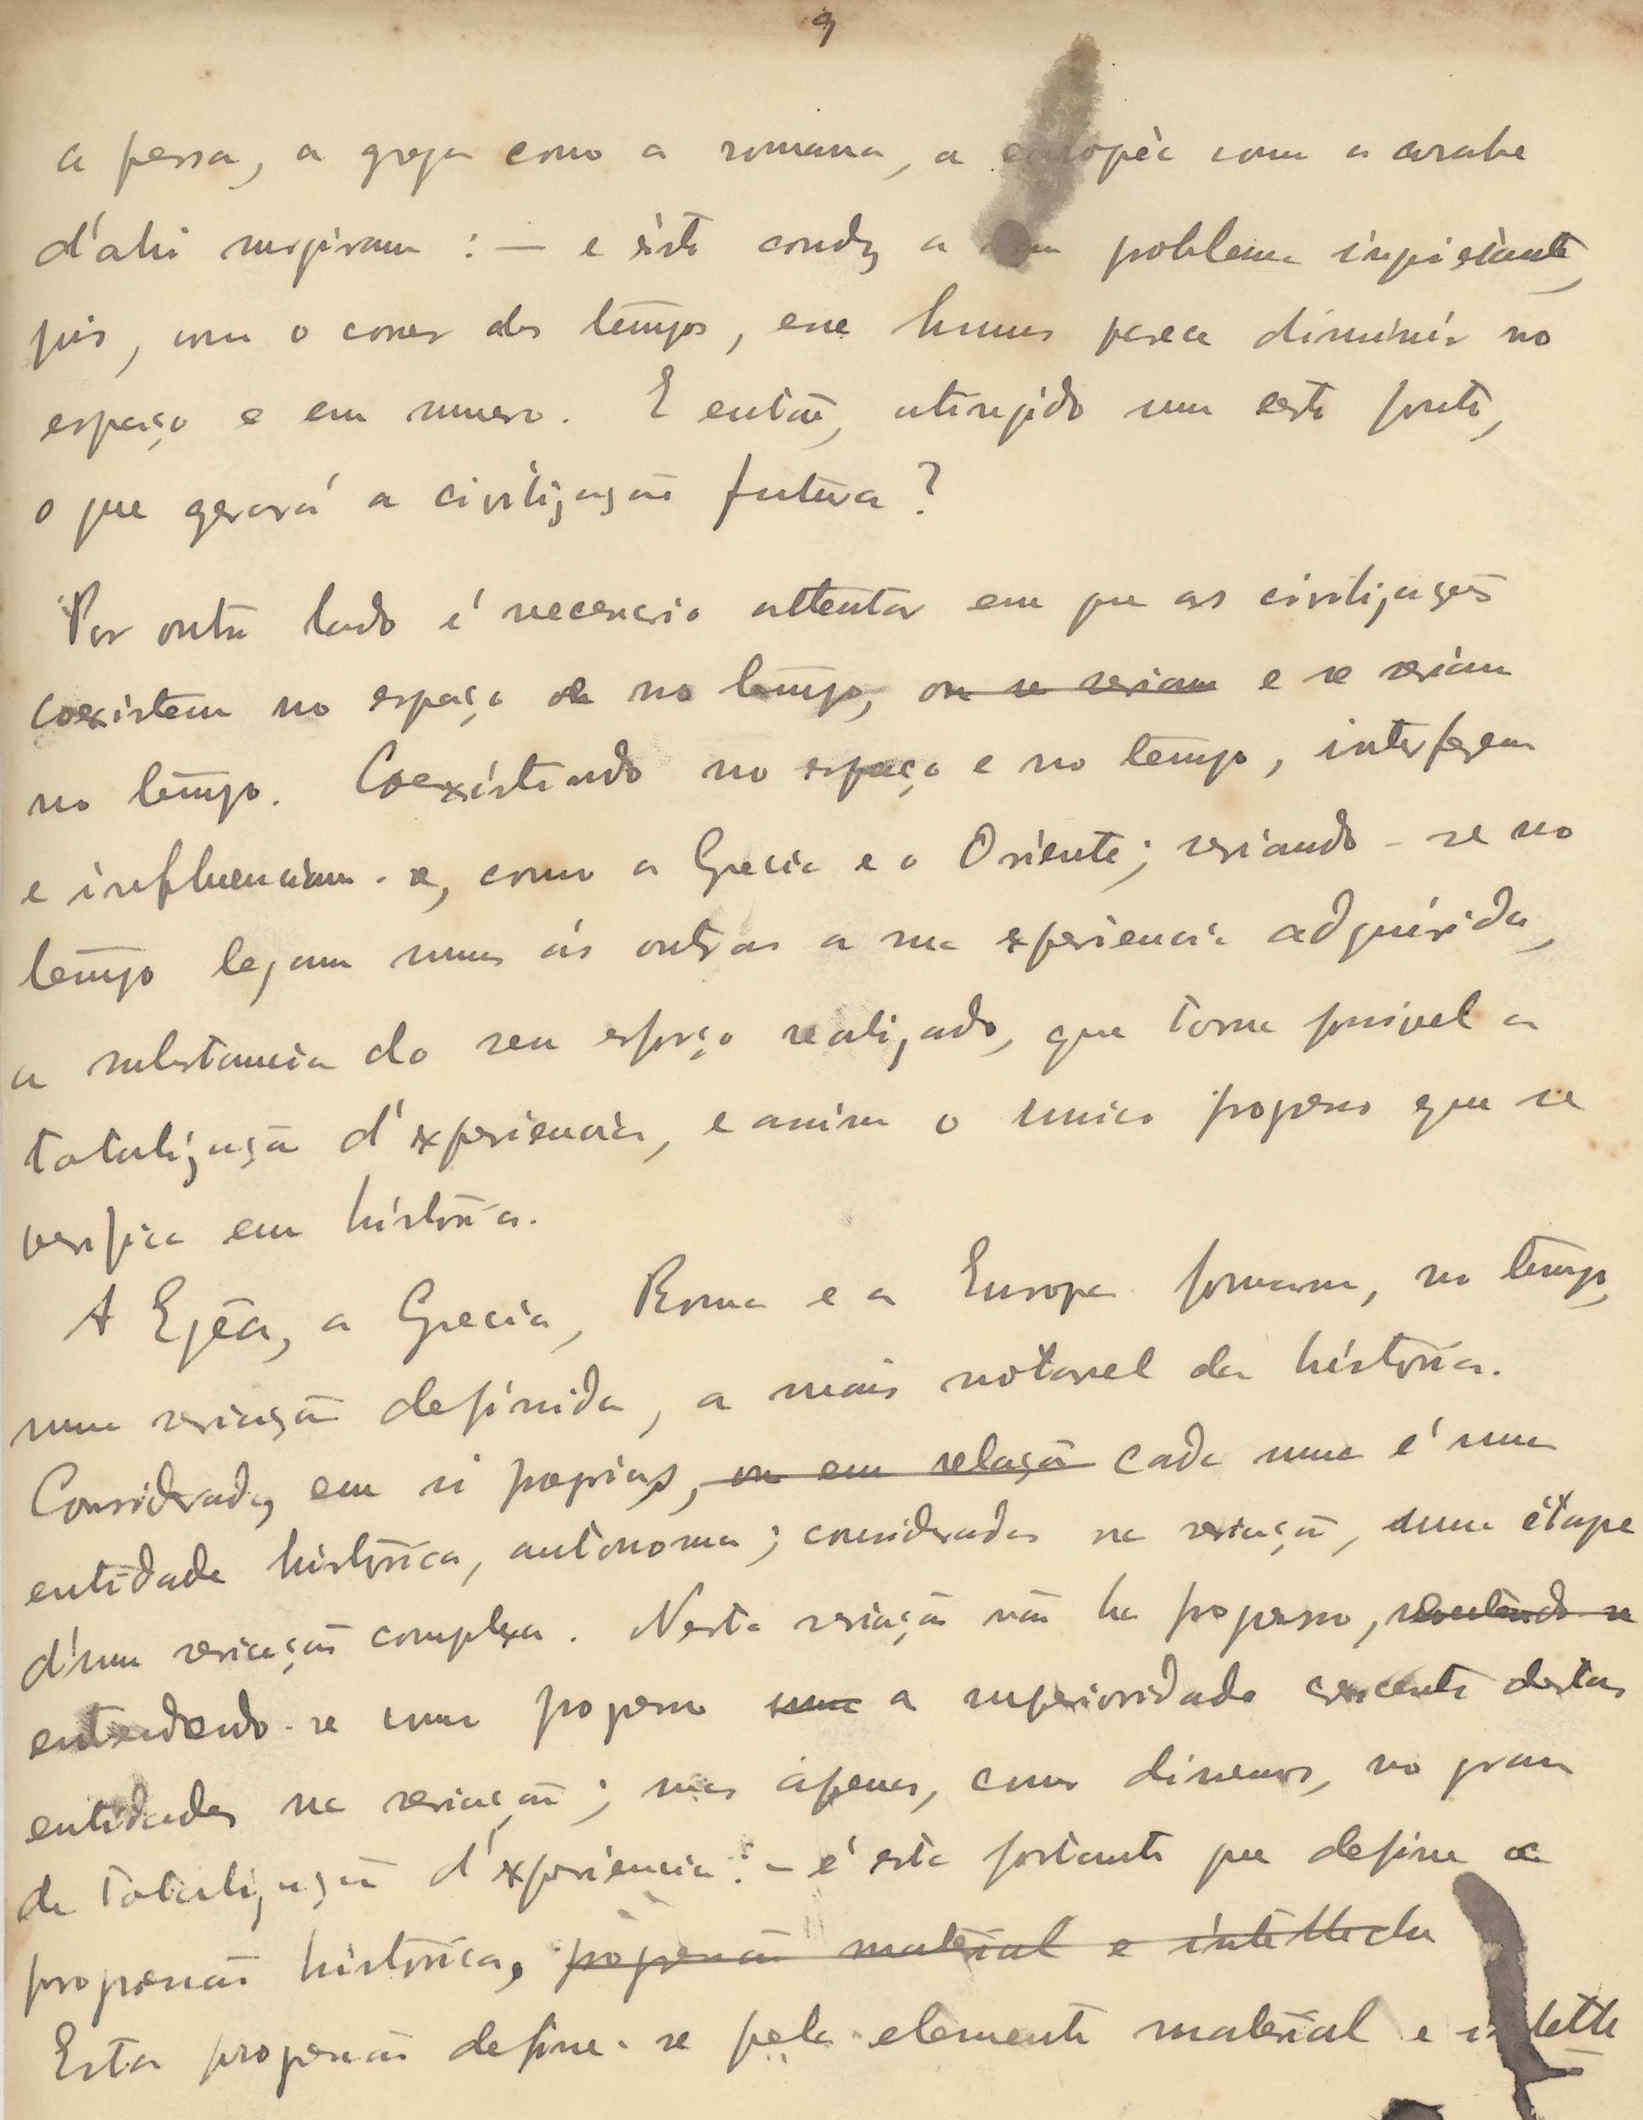 9
a persa, a grega como a romana, a europêa como a arabe
d'ahi surgiram : — e isto conduz a um problema inquietante,
pois, com o correr dos tempos, esse humus parece diminuir no
espaço e em numero. E então, atingido um certo ponto,
o que gerará a civilização futura?
Por outro lado é necessario attentar em que as civilizações
coexistem no espaço e no tempo, ou se seriam e se seriam
no tempo. Coexistindo no espaço e no tempo, interferem
e influenciam-se, como a Grecia e o Oriente; seriando-se no
tempo legam umas ás outras a sua experiencia adquirida,
a substancia do seu esforço realizado, que torna possivel a
totalização d'experiencia, e assim o unico progresso que se
verifica em história.
A Egêa, a Grecia, Roma e a Europa formam, no tempo,
uma seriação definida, a mais notavel da história.
Consideradas em si proprias, ou em relação cada uma é uma
entidade histórica, autonoma; consideradas na seriação, uma étape
d'uma seriação complexa. Nesta seriação não ha progresso,
entendendo-se como progresso uma a superioridade crescente destas
entidades na seriação; mas apenas, como dissemos, no grau
de totalização d'experiencia : – é esta portanto que define a
progressão histórica, progressão material e intellectu
Esta progressão define-se pelo elemento material e intelle